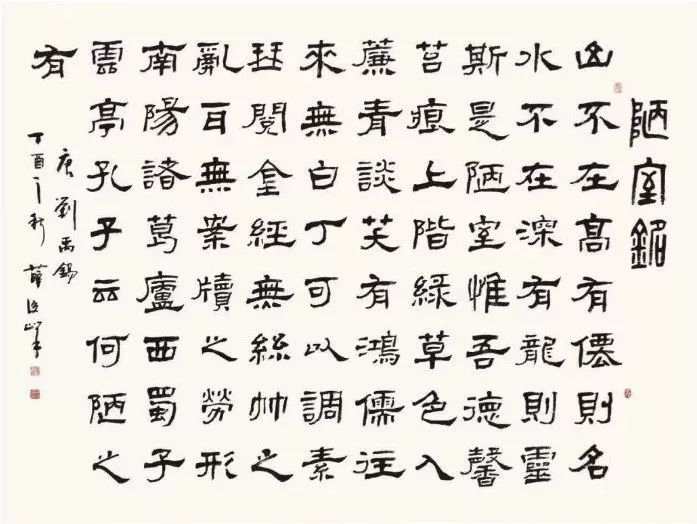 陋室銘
山不在高有僊則名
水不在深有龍則靈
斯是陋室惟吾德馨
苔痕上階綠草色入
簾青談笑有鴻儒往
來無白丁可以調素
琴閱金經無絲竹之
亂耳無案牘之勞形
南陽諸葛廬西蜀子
雲亭孔子云何陋之
有
唐劉禹錫
丁酉之秋薛峰